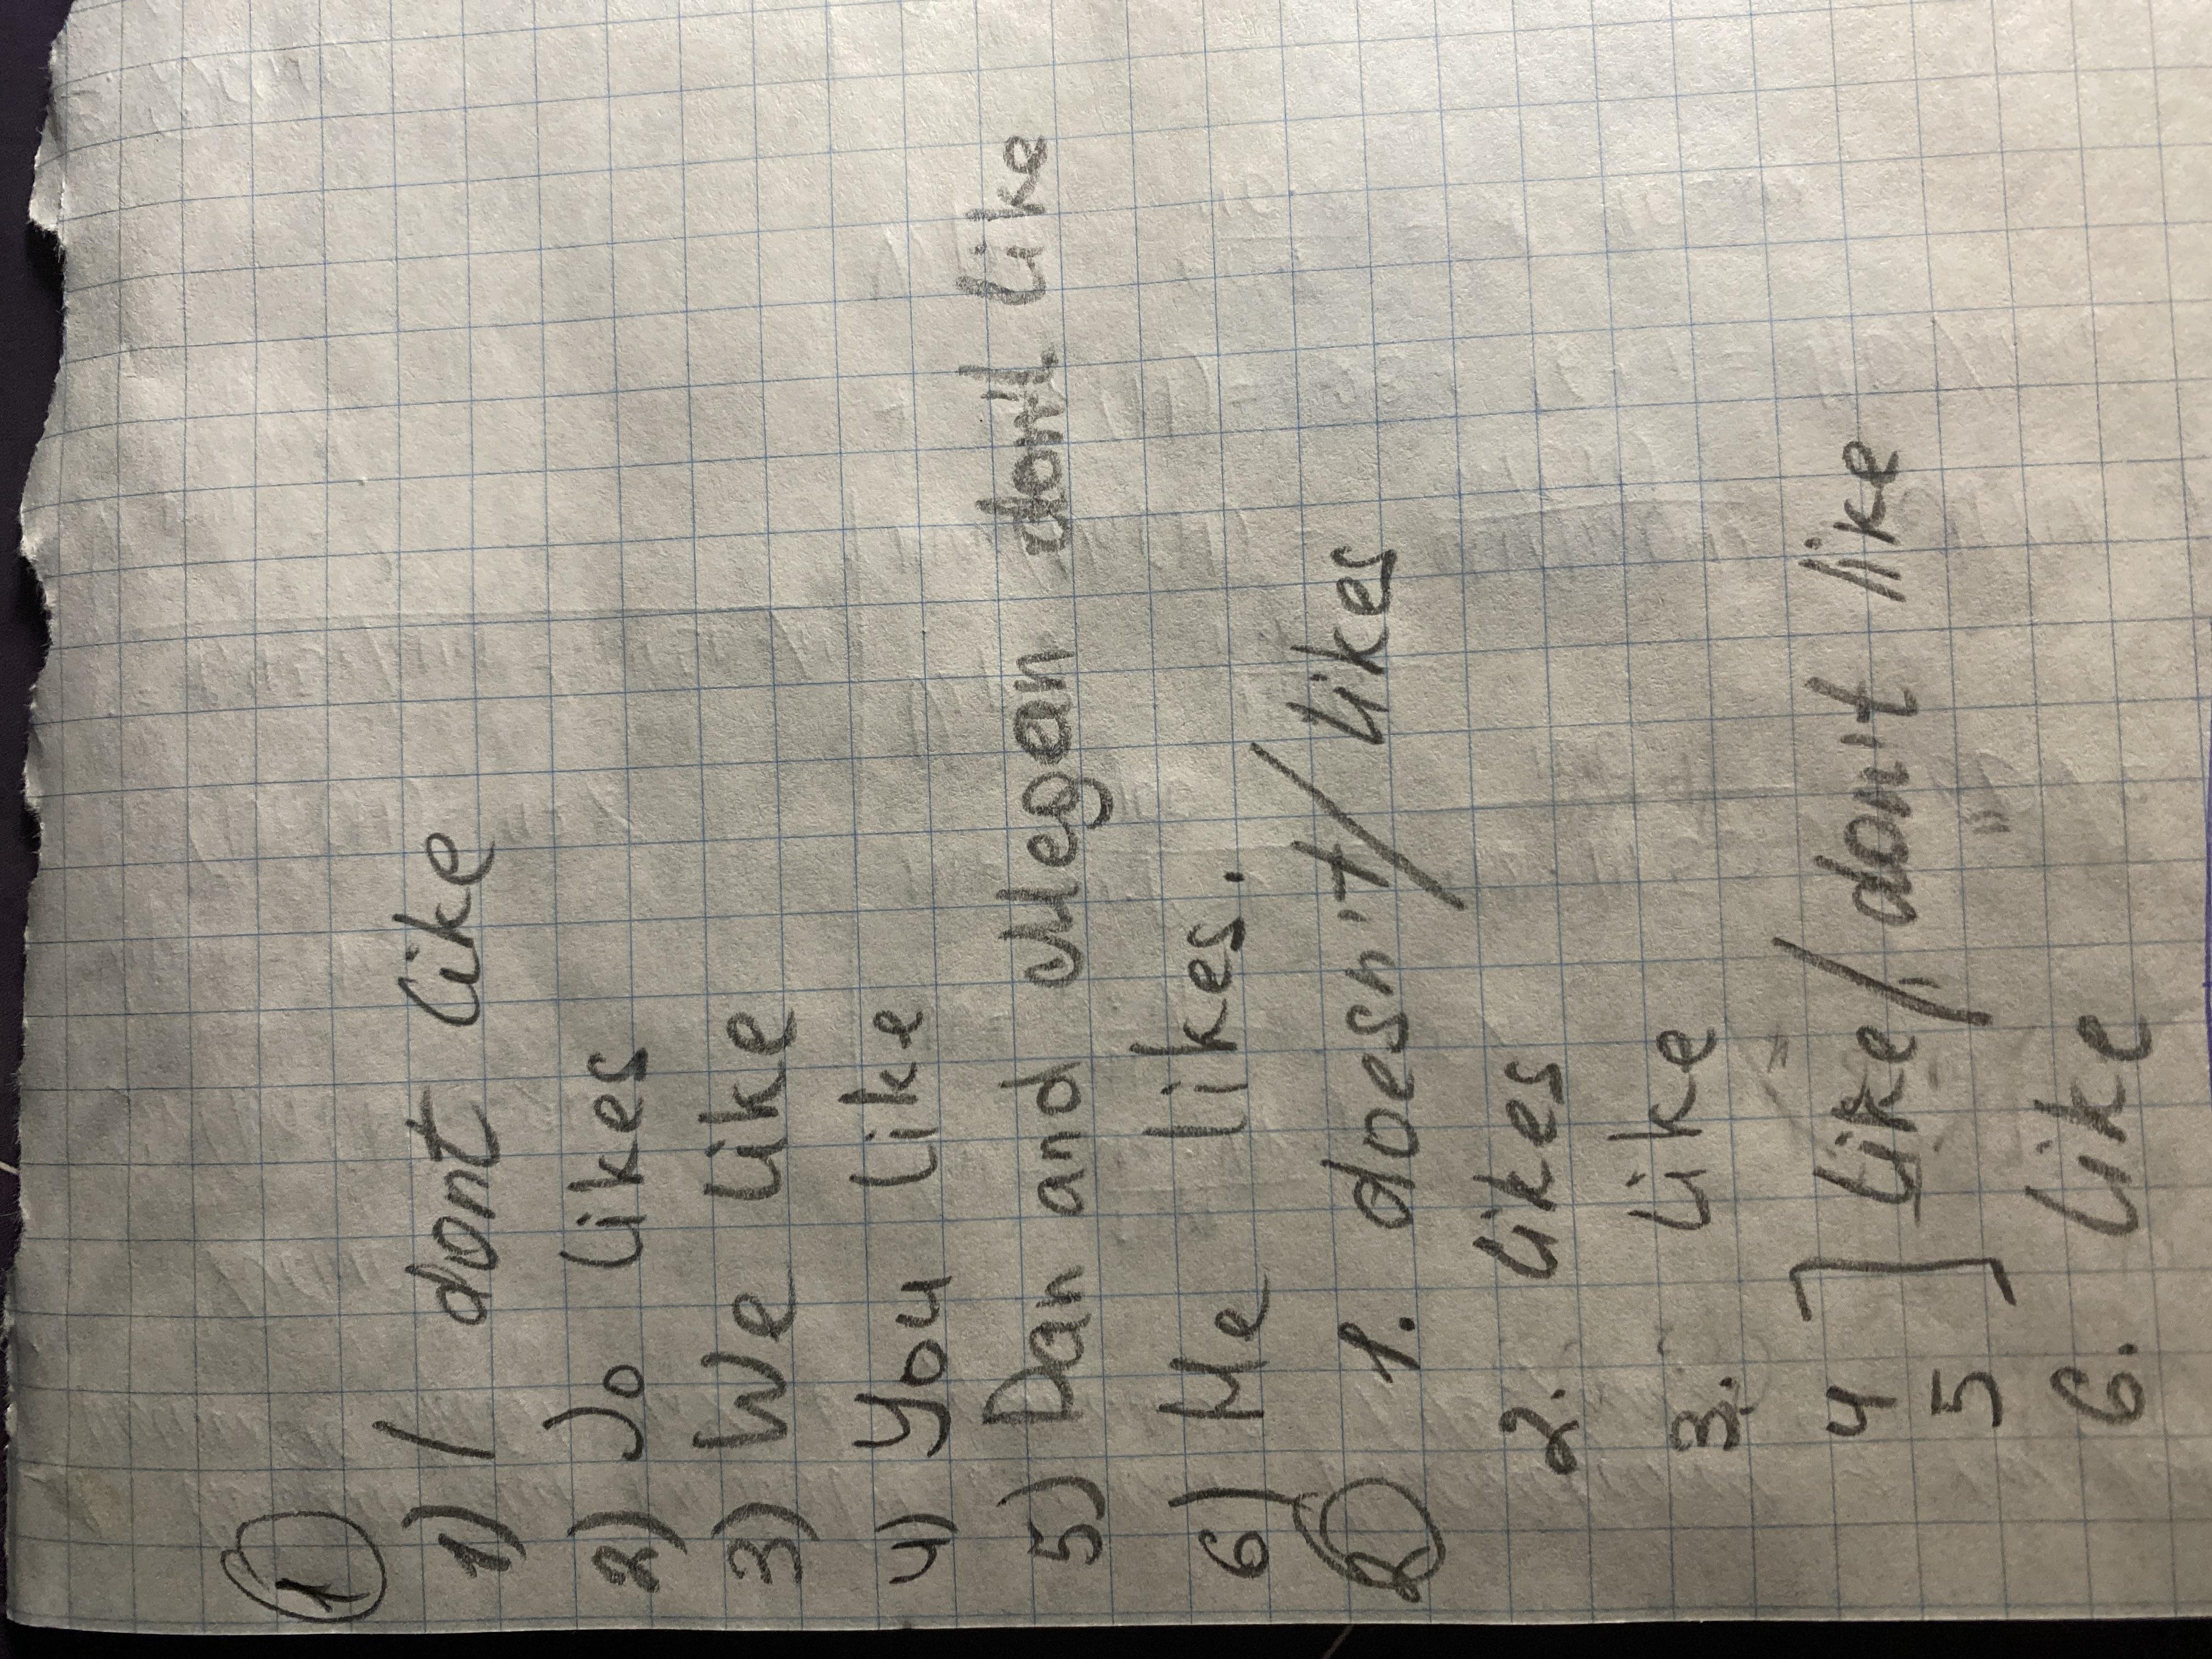 1
1) I dont like
2) Jo likes
3) We like
4) You like
5) Dan and Megan don't like
6) He likes.
2 1. doesn't / likes
2. likes
3. like
4 ] like / don't like
5 "
6. like